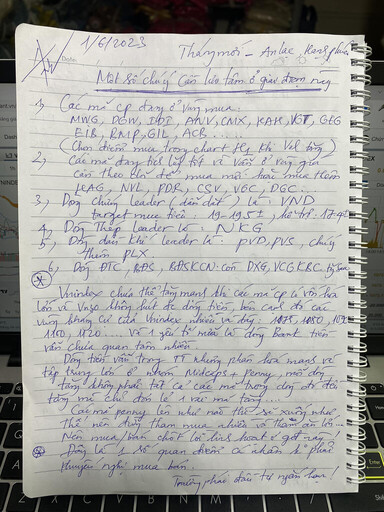 1/6/2023
Tháng mới - An lạc, Hạnh phúc
Một số chú ý cần lưu tâm ở giai đoạn này
1, Các mã cp đang ở vùng mua:
MWG, DGW, IDI, ANV, CMX, KAH, VGT, GEG
EIB, BMP, GIL, ACB .....
(Chọn điểm mua trong chart khi Vol tăng)
2, Các mã đang tích lũy tốt và vẫn ở vùng giá
cần theo dõi để mua mới hoặc mua thêm
HAG, NVL, PDR, CSV, VGC, DGC...
3, Dòng chứng leader (dẫn dắt) là: VND
target mục tiêu: 19-19.5, hỗ trợ: 17
4, Dòng Thép leader là: NKG
5, Dòng dầu khí leader là: PVD, PVS, chú ý
thêm PLX
6, Dòng ĐTC, BĐS, BĐS KCN: con DXG, VCG, KBC
Vnindex chưa thể tăng mạnh khi các mã cp có vốn hóa
lớn và Vn30 không hút được dòng tiền, bên cạnh đó các
vùng kháng cự của Vnindex nhiều và dày: 1075, 1080, 109
1100, 1120... Và 1 yếu tố nữa là dòng Bank tiền
vẫn chưa quan tâm nhiều.
Dòng tiền vẫn trong TT nhưng phân hóa mạnh và
tập trung lớn ở nhóm Midcaps + penny, mỗi dòng
tăng không phải tất cả các mã trong dòng đó đều
tăng mà chỉ đơn lẻ 1 vài mã tăng...
Các mã penny lên như nào thì sẽ xuống như
thế nên đừng tham mua nhiều và tham ăn lớn
Nên mua bán chốt lời linh hoạt ở gđ này!
Đây là 1 số quan điểm cá nhân k phải
khuyến nghị mua bán.
Trường phái đầu tư ngắn hạn!